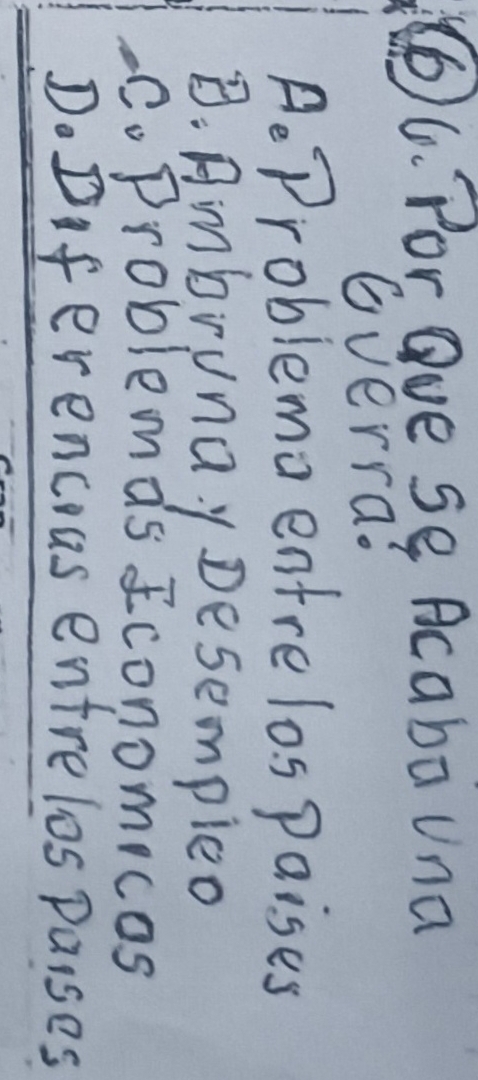 6 6. Por Que se Acaba una
Guerra.
A. Problema entre los Paises
B. Ambruna y Desempleo
C. Problemas Economicos
D. Diferencias entre los Paises